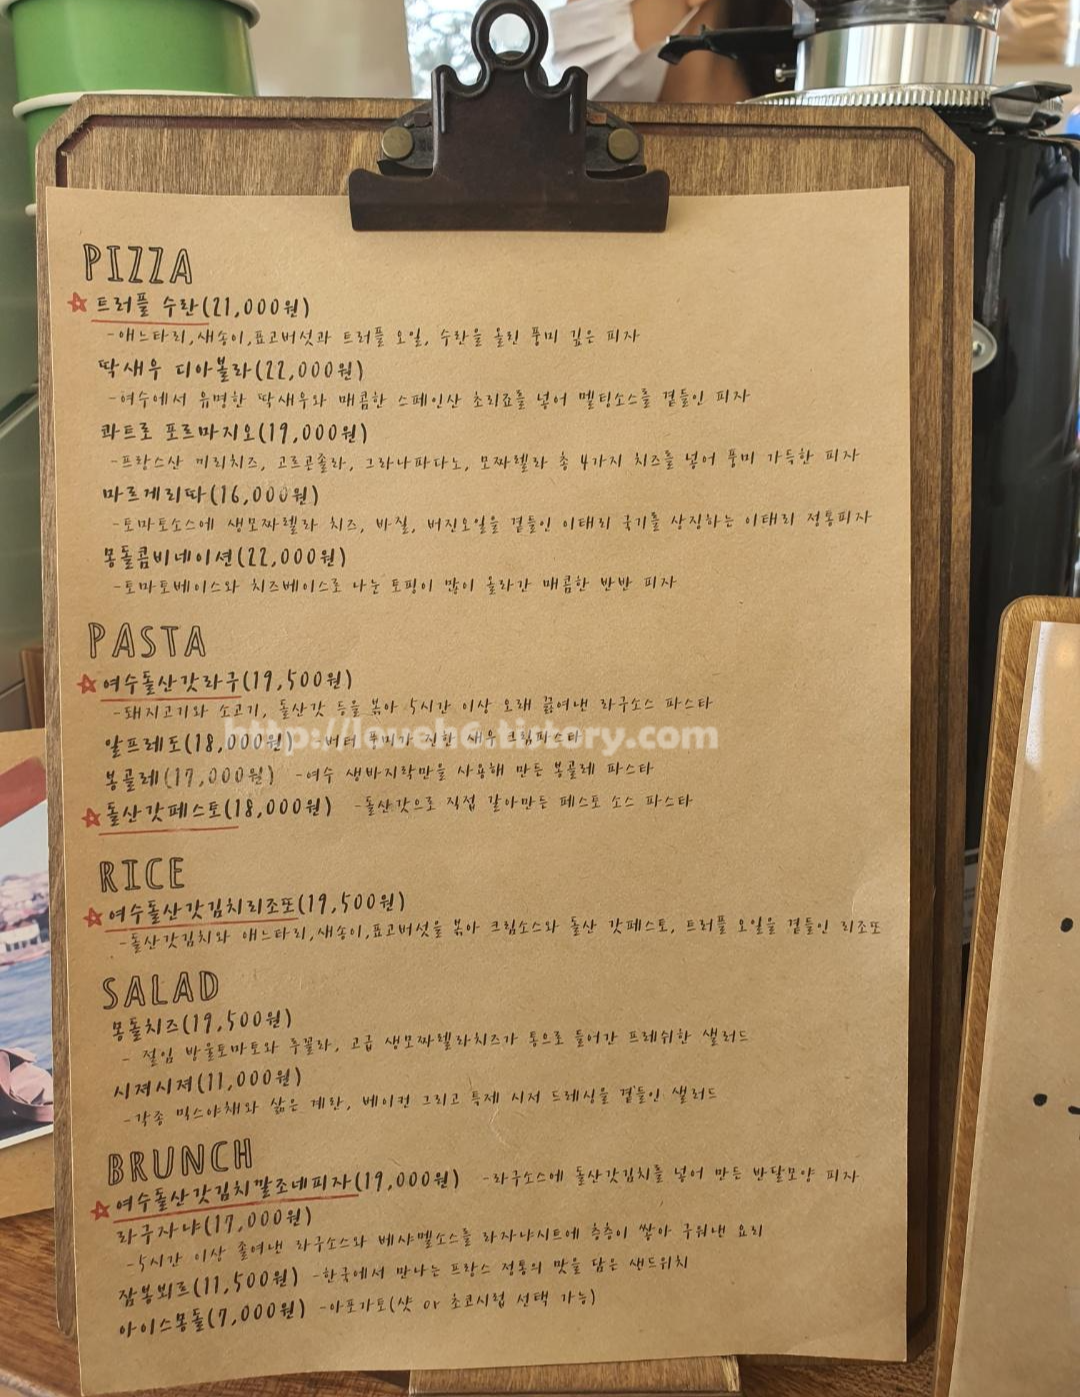 PIZZA
트러플 수란(21,000원)
-애느타리,새송이,표고버섯과 트러플 오일, 수란을 올린 풍미 깊은 피자
딱새우 디아볼라(22,000원)
-여수에서 유명한 딱새우와 매콤한 스페인산 초리죠를 넣어 멜팅소스를 곁들인 피자
콰트로 포르마지오(19,000원)
-프랑스산 끼리치즈, 고르곤졸라, 그라나파다노, 모짜렐라 총 4가지 치즈를 넣어 풍미 가득한 피자
마르게리따(16,000원)
-토마토소스에 생모짜렐라 치즈, 바질, 버진오일을 곁들인 이태리 국기를 상징하는 이태리 정통피자
몽돌콤비네이션(22,000원)
-토마토베이스와 치즈베이스로 나눈 토핑이 많이 올라간 매콤한 반반 피자
PASTA
여수돌산갓라구(19,500원)
-돼지고기와 소고기, 돌산갓 등을 볶아 5시간 이상 오래 끓여낸 라구소스 파스타
알프레도(18,000원) -버터 풍미가 진한 새우 크림파스타
http://loveh6.tistory.com
봉골레(17,000원) -여수 생바지락만을 사용해 만든 봉골레 파스타
돌산갓페스토(18,000원) -돌산갓으로 직접 갈아만든 페스토 소스 파스타
RICE
여수돌산갓김치리조또(19,500원)
-돌산갓김치와 애느타리,새송이,표고버섯을 볶아 크림소스와 돌산 갓페스토, 트러플 오일을 곁들인 리조또
SALAD
몽돌치즈(19,500원)
- 절임 방울토마토와 루꼴라, 고급 생모짜렐라치즈가 통으로 들어간 프레쉬한 샐러드
시져시져(11,000원)
-각종 믹스야채와 삶은 계란, 베이컨 그리고 특제 시저 드레싱을 곁들인 샐러드
BRUNCH
여수돌산갓김치깔조네피자(19,000원) -라구소스에 돌산갓김치를 넣어 만든 반달모양 피자
라구자냐(17,000원)
-5시간 이상 졸여낸 라구소스와 베샤멜소스를 라자냐시트에 층층이 쌓아 구워낸 요리
잠봉뵈르(11,500원) -한국에서 만나는 프랑스 정통의 맛을 담은 샌드위치
아이스몽돌(7,000원) -아포가토(샷 or 초코시럽 선택 가능)